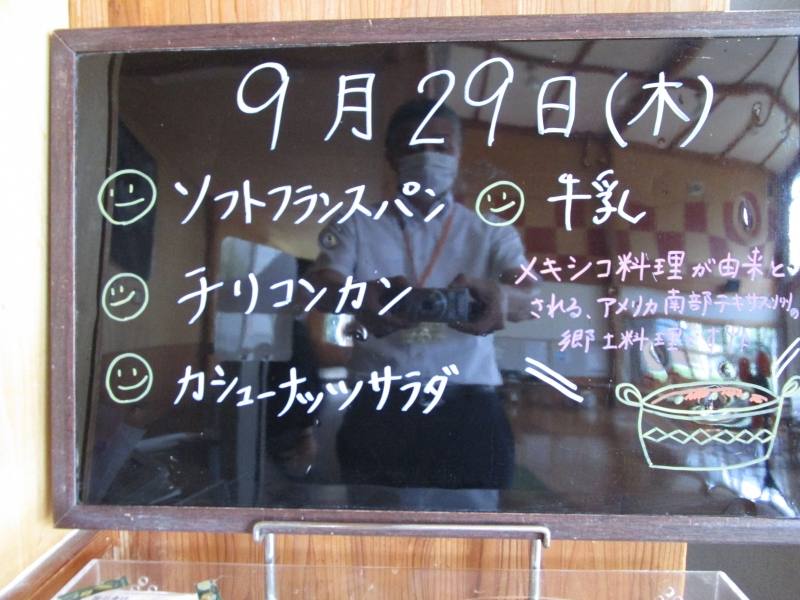 9月29日(木)
ソフトフランスパン
牛乳
チリコンカン
カシューナッツサラダ
メキシコ料理が由来と
される、アメリカ南部テキサス州の
郷土料理です